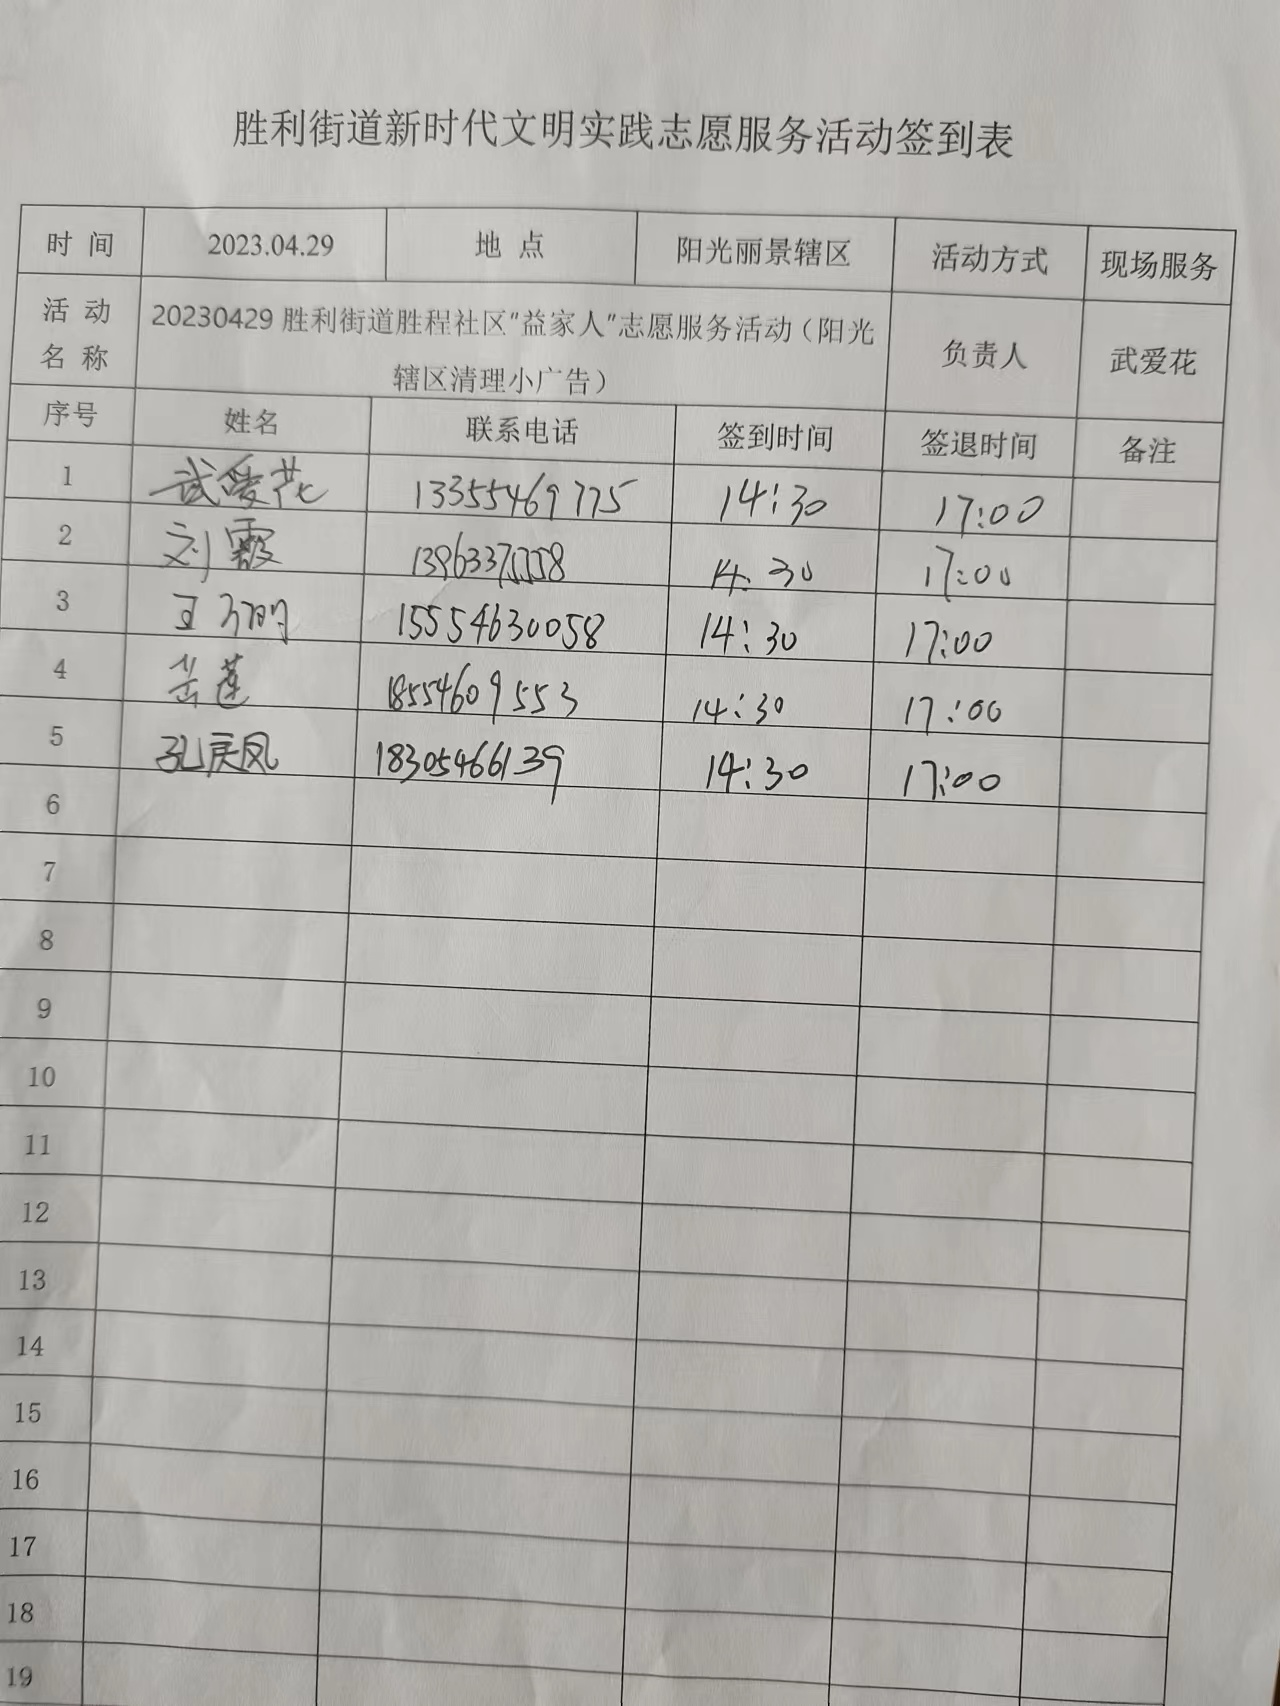 胜利街道新时代文明实践志愿服务活动签到表
时 间 2023.04.29 地 点 阳光丽景辖区 活动方式 现场服务
活 动 名 称 20230429胜利街道胜程社区"益家人"志愿服务活动（阳光
辖区清理小广告） 负责人 武爱花
序号 姓名 联系电话 签到时间 签退时间 备注
1 武爱花 13355469775 14:30 17:00
2 刘霞 14:30 17:00
3 15554630058 14:30 17:00
4 岳莲 18554609553 14:30 17:00
5 18305466139 14:30 17:00
6
7
8
9
10
11
12
13
14
15
16
17
18
19